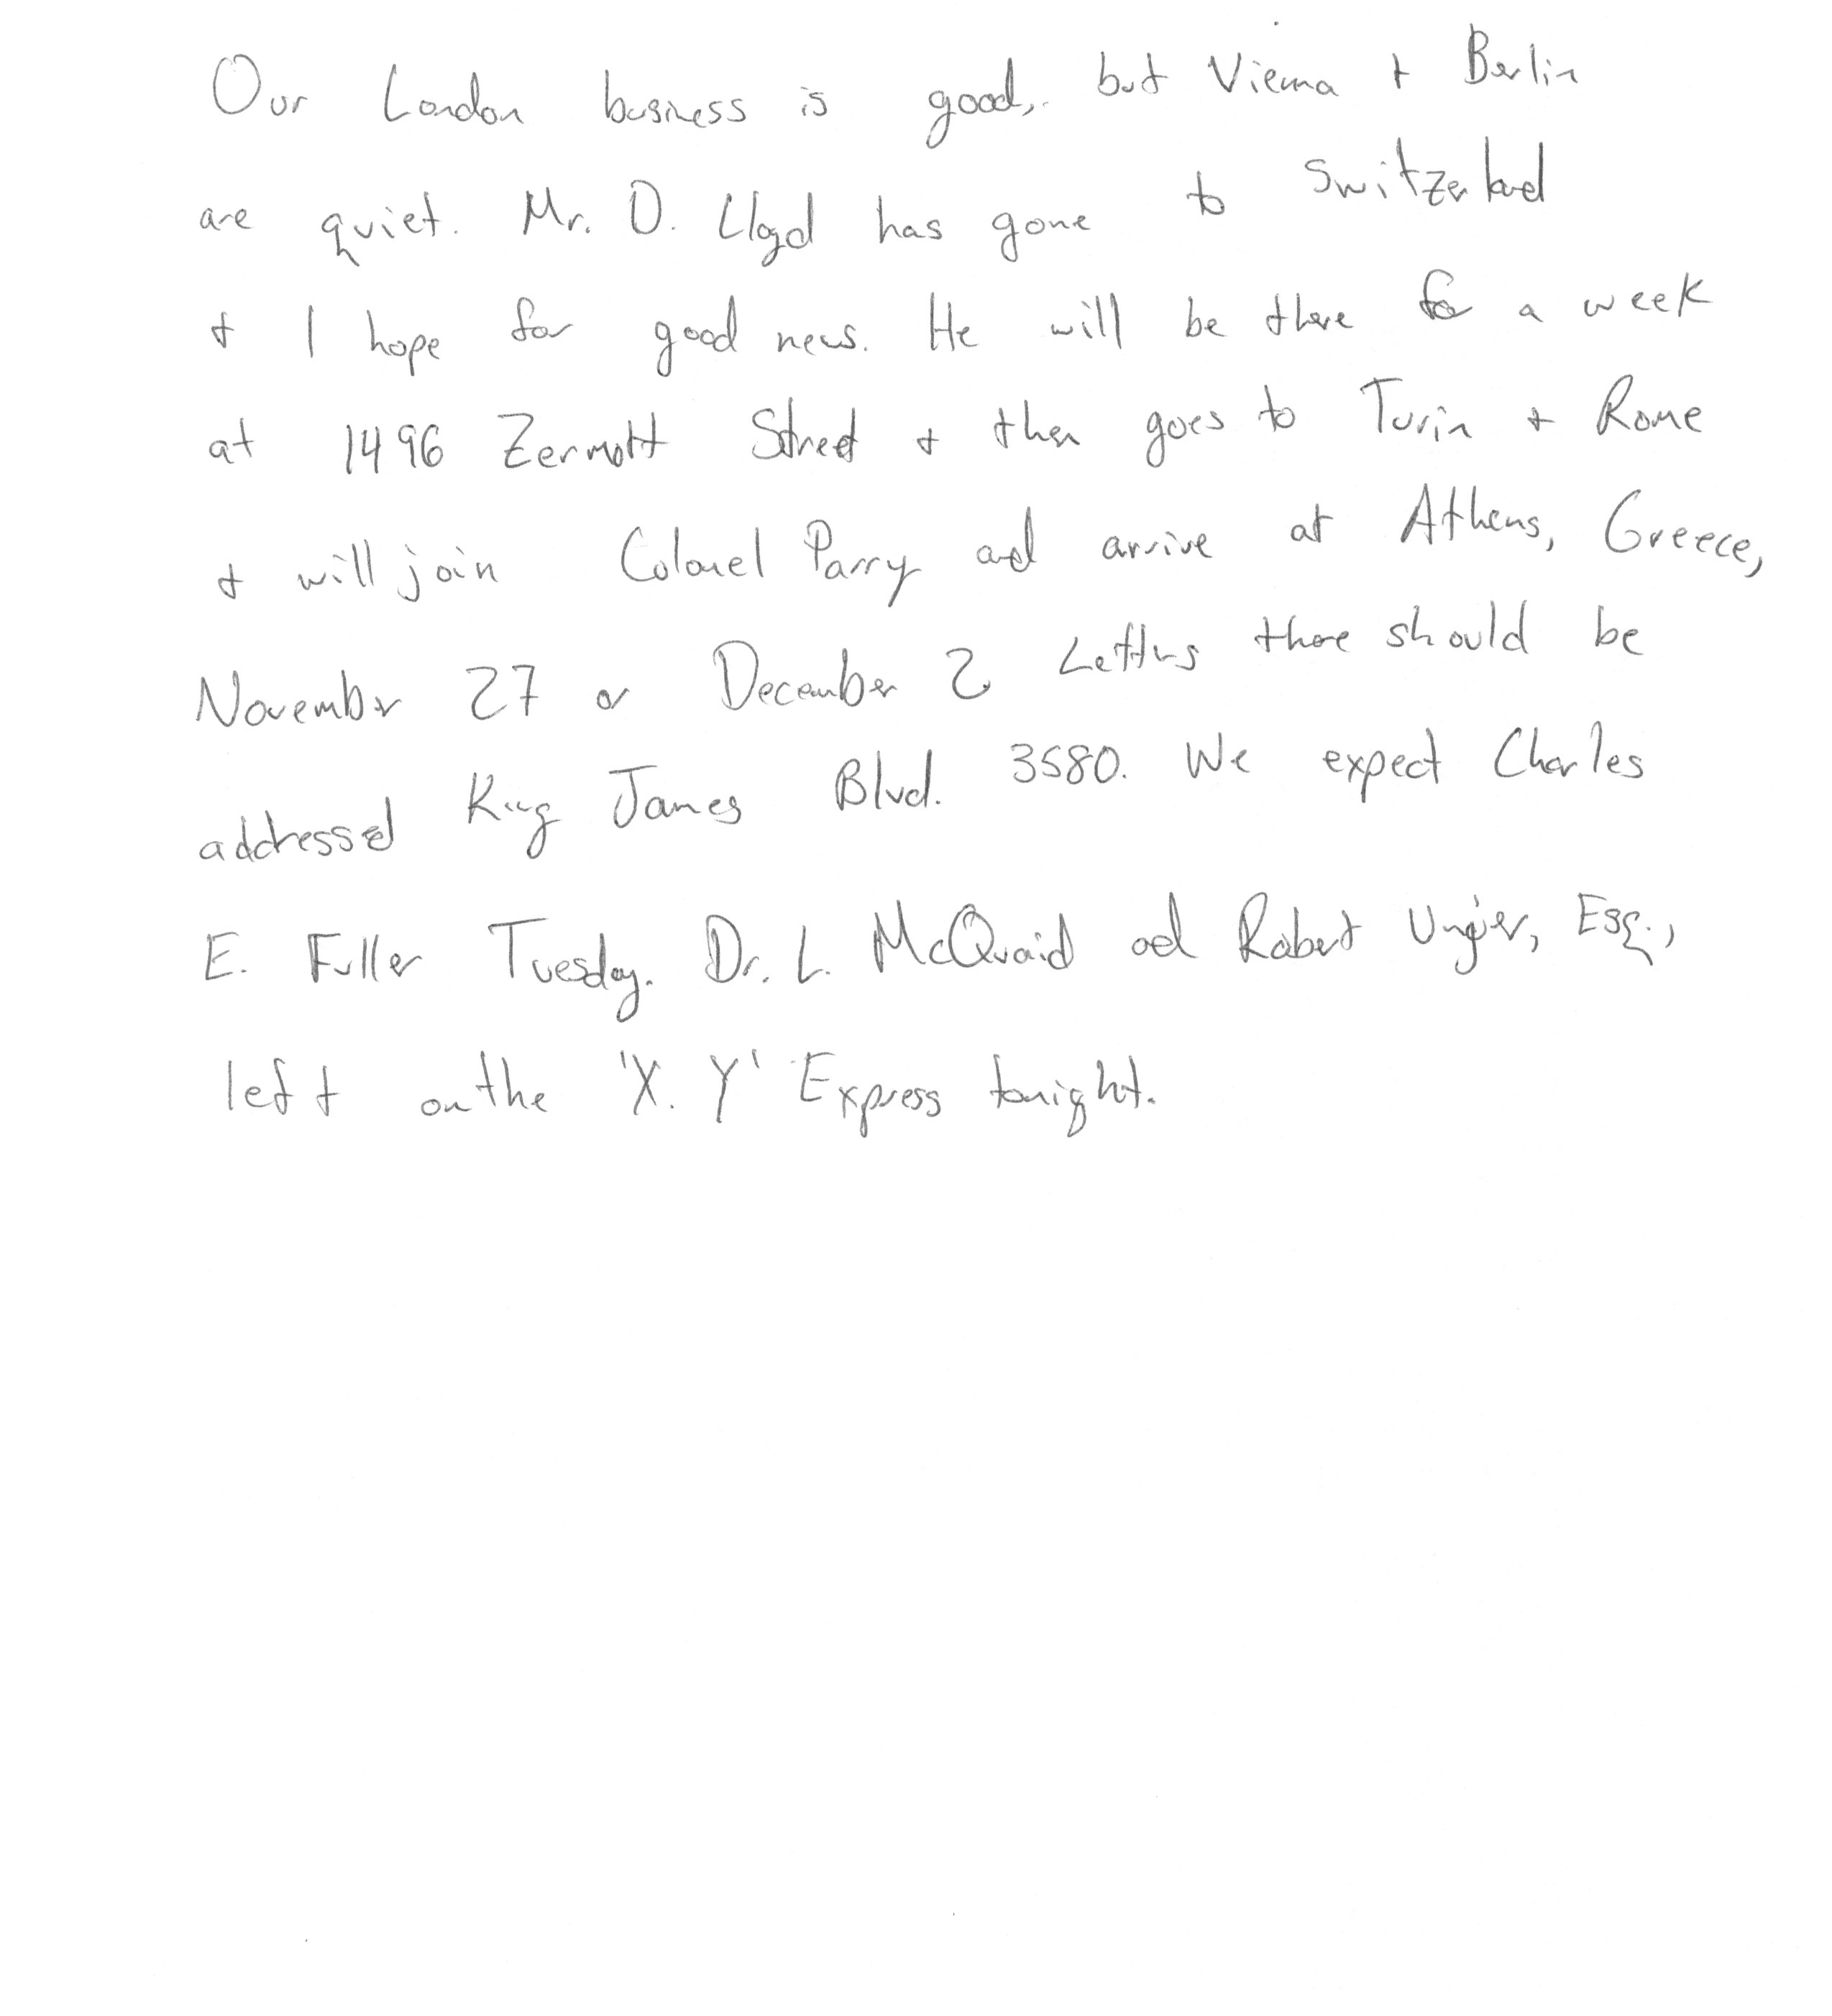 Our London business is good, but Vienna + Berlin
are quiet. Mr. D. Lloyd has gone to Switzerland
+ I hope for good news. He will be there for a week
at 1496 Zermott Street + then goes to Turin + Rome
+ will join Colonel Parry and arrive at Athens, Greece,
November 27 or December 2. Letters there should be
addressed King James Blvd. 3580. We expect Charles
E. Fuller Tuesday. Dr. L. McQuaid and Robert Unger, Esq.,
left on the 'X. Y' Express tonight.